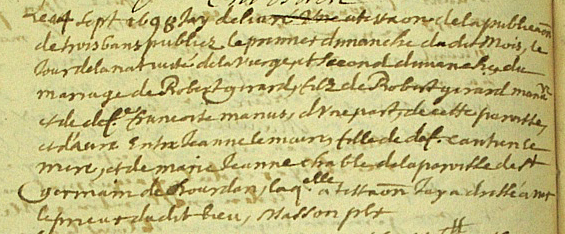 Le 14 sept 1698 Jay delivré attestaon de la publicaon
de trois bans publiez le premier dimanche du dit Mois, le
Jour de la nativité de la vierge et second dimanche, du
mariage de Robert girard, filz de Robert girard manu
et de def.te francoise manuts, d'vne part, de cette paroisse,
et d'autre Entre Jeanne le meire, fille de def.
mire, et de marie Jeanne chable de la paroisse de st
germain de Dourdan, laqlle attestaon Jay adressé a mr
le prieur du dit lieu, Masson pbr